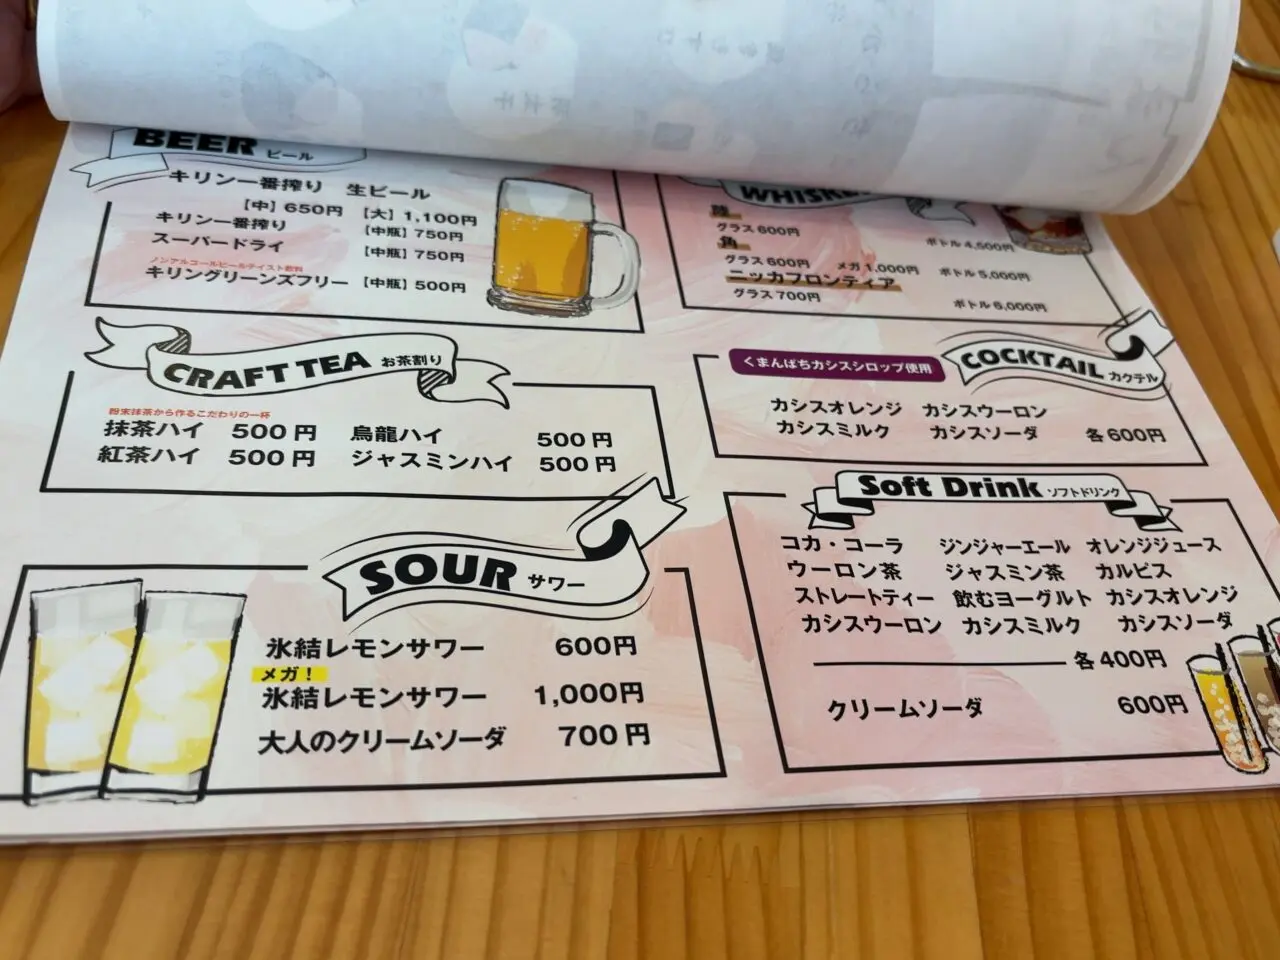 BEER ビール
キリン一番搾り 生ビール
【中】650円 【大】1,100円
キリン一番搾り 【中瓶】750円
スーパードライ 【中瓶】750円
ノンアルコールビールテイスト飲料
キリングリーンズフリー 【中瓶】500円
WHISKE
陸
グラス600円 ボトル4,500円
角
グラス600円 メガ1,000円 ボトル5,000円
ニッカフロンティア
グラス700円 ボトル6,000円
CRAFT TEA お茶割り
粉末抹茶から作るこだわりの一杯
抹茶ハイ 500円 烏龍ハイ 500円
紅茶ハイ 500円 ジャスミンハイ 500円
くまんばちカシスシロップ使用 COCKTAIL カクテル
カシスオレンジ カシスウーロン
カシスミルク カシスソーダ 各600円
SOUR サワー
氷結レモンサワー 600円
メガ！
氷結レモンサワー 1,000円
大人のクリームソーダ 700円
Soft Drink ソフトドリンク
コカ・コーラ ジンジャーエール オレンジジュース
ウーロン茶 ジャスミン茶 カルピス
ストレートティー 飲むヨーグルト カシスオレンジ
カシスウーロン カシスミルク カシスソーダ
各400円
クリームソーダ 600円